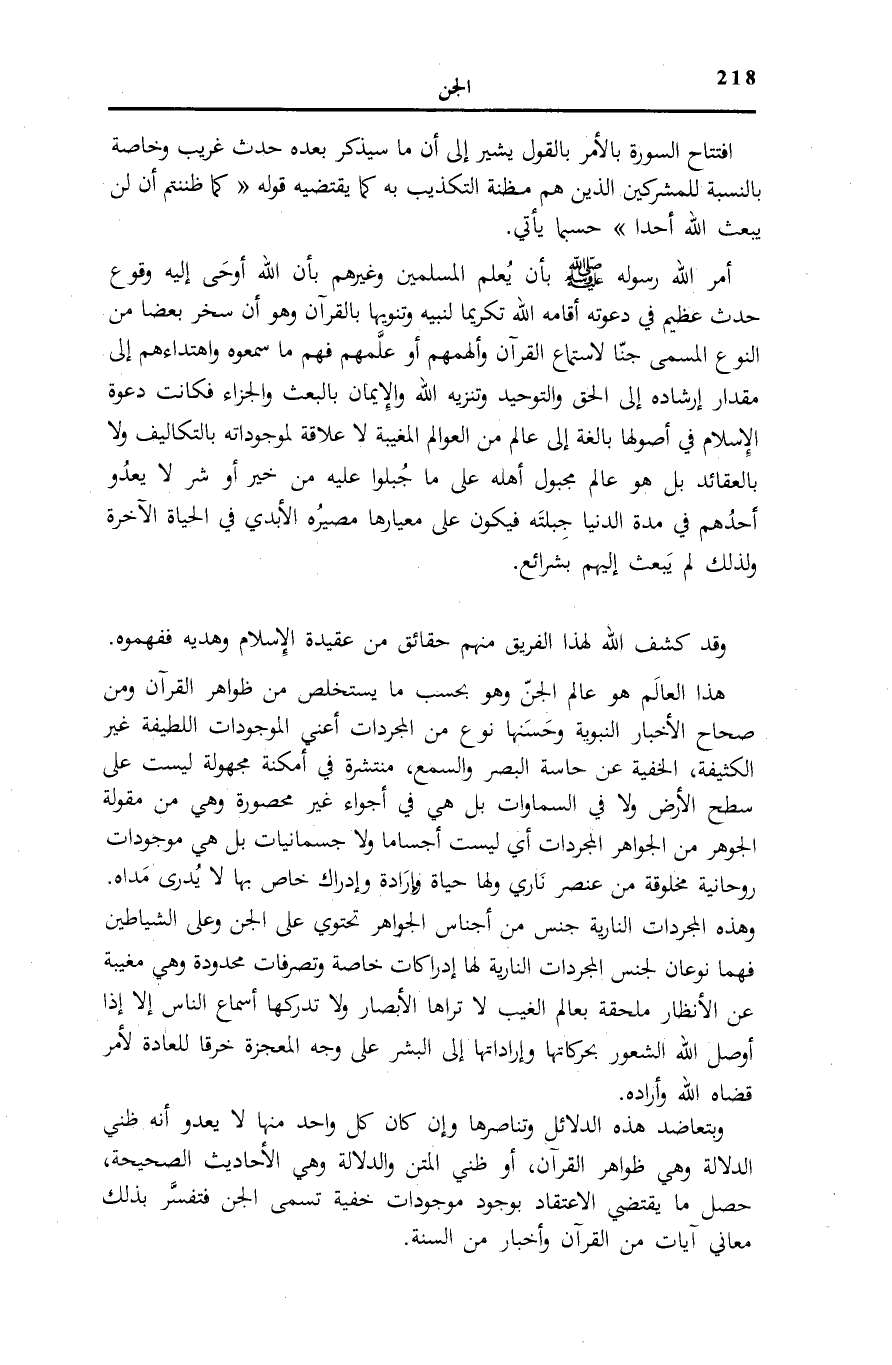 218
الجن
افتتاح السورة بالأمر بالقول يشير إلى أن ما سيذكر بعده حدث غريب وخاصة
بالنسبة للمشركين الذين هم مظنة التكذيب به كما يقتضيه قوله « كما ظننتم أن لن
يبعث الله أحدا » حسبما يأتي.
أمر الله رسوله ﷺ بأن يُعلم المسلمين وغيرهم بأن الله أوحَى إليه وقوع
حدث عظيم في دعوته أقامه الله تكريما لنبيه وتنويها بالقرآن وهو أن سخر بعضا من
النوع المسمى جنّا لاستماع القرآن وألهمهم أو علَّمهم فهم ما سمعوه واهتداءهم إلى
مقدار إرشاده إلى الحق والتوحيد وتنزيه الله والإيمان بالبعث والجزاء فكانت دعوة
الإسلام في أصولها بالغة إلى عالم من العوالم المغيبة لا علاقة لموجوداته بالتكاليف ولا
بالعقائد بل هو عالم مجبول أهله على ما جُبلوا عليه من خير أو شر لا يعدُو
أحدُهم في مدة الدنيا جِبلتَه فيكون على معيارها مصيرُه الأبدي في الحياة الآخرة
ولذلك لم يَبعث إليهم بشرائع.
وقد كشف الله لهذا الفريق منهم حقائق من عقيدة الإسلام وهديه ففهموه.
هذا العالَم هو عالم الجنّ وهو بحسب ما يستخلص من ظواهر القرآن ومن
صحاح الأخبار النبوية وحَسَنها نوع من المجردات أعني الموجودات اللطيفة غير
الكثيفة، الخفية عن حاسة البصر والسمع، منتشرة في أمكنة مجهولة ليست على
سطح الأرض ولا في السماوات بل هي في أجواء غير محصورة وهي من مقولة
الجوهر من الجواهر المجردات أي ليست أجساما ولا جسمانيات بل هي موجودات
روحانية مخلوقة من عنصر نَاري ولها حياة وإرَادة وإدراك خاص بها لا يُدرى مَداه.
وهذه المجردات النارية جنس من أجناس الجواهر تحتوي على الجن وعلى الشياطين
فهما نوعان لجنس المجردات النارية لها إدراكات خاصة وتصرفات محدودة وهي مغيبة
عن الأنظار ملحقة بعالم الغيب لا تراها الأبصار ولا تدركها أسماع الناس إلا إذا
أوصل الله الشعور بحركاتها وإراداتها إلى البشر على وجه المعجزة خرقا للعادة لأمر
قضاه الله وأراده.
وبتعاضد هذه الدلائل وتناصرها وإن كان كل واحد منها لا يعدو أنه ظني
الدلالة وهي ظواهر القرآن، أو ظني المتن والدلالة وهي الأحاديث الصحيحة،
حصل ما يقتضي الاعتقاد بوجود موجودات خفية تسمى الجن فتفسَّر بذلك
معاني آيات من القرآن وأخبار من السنة.